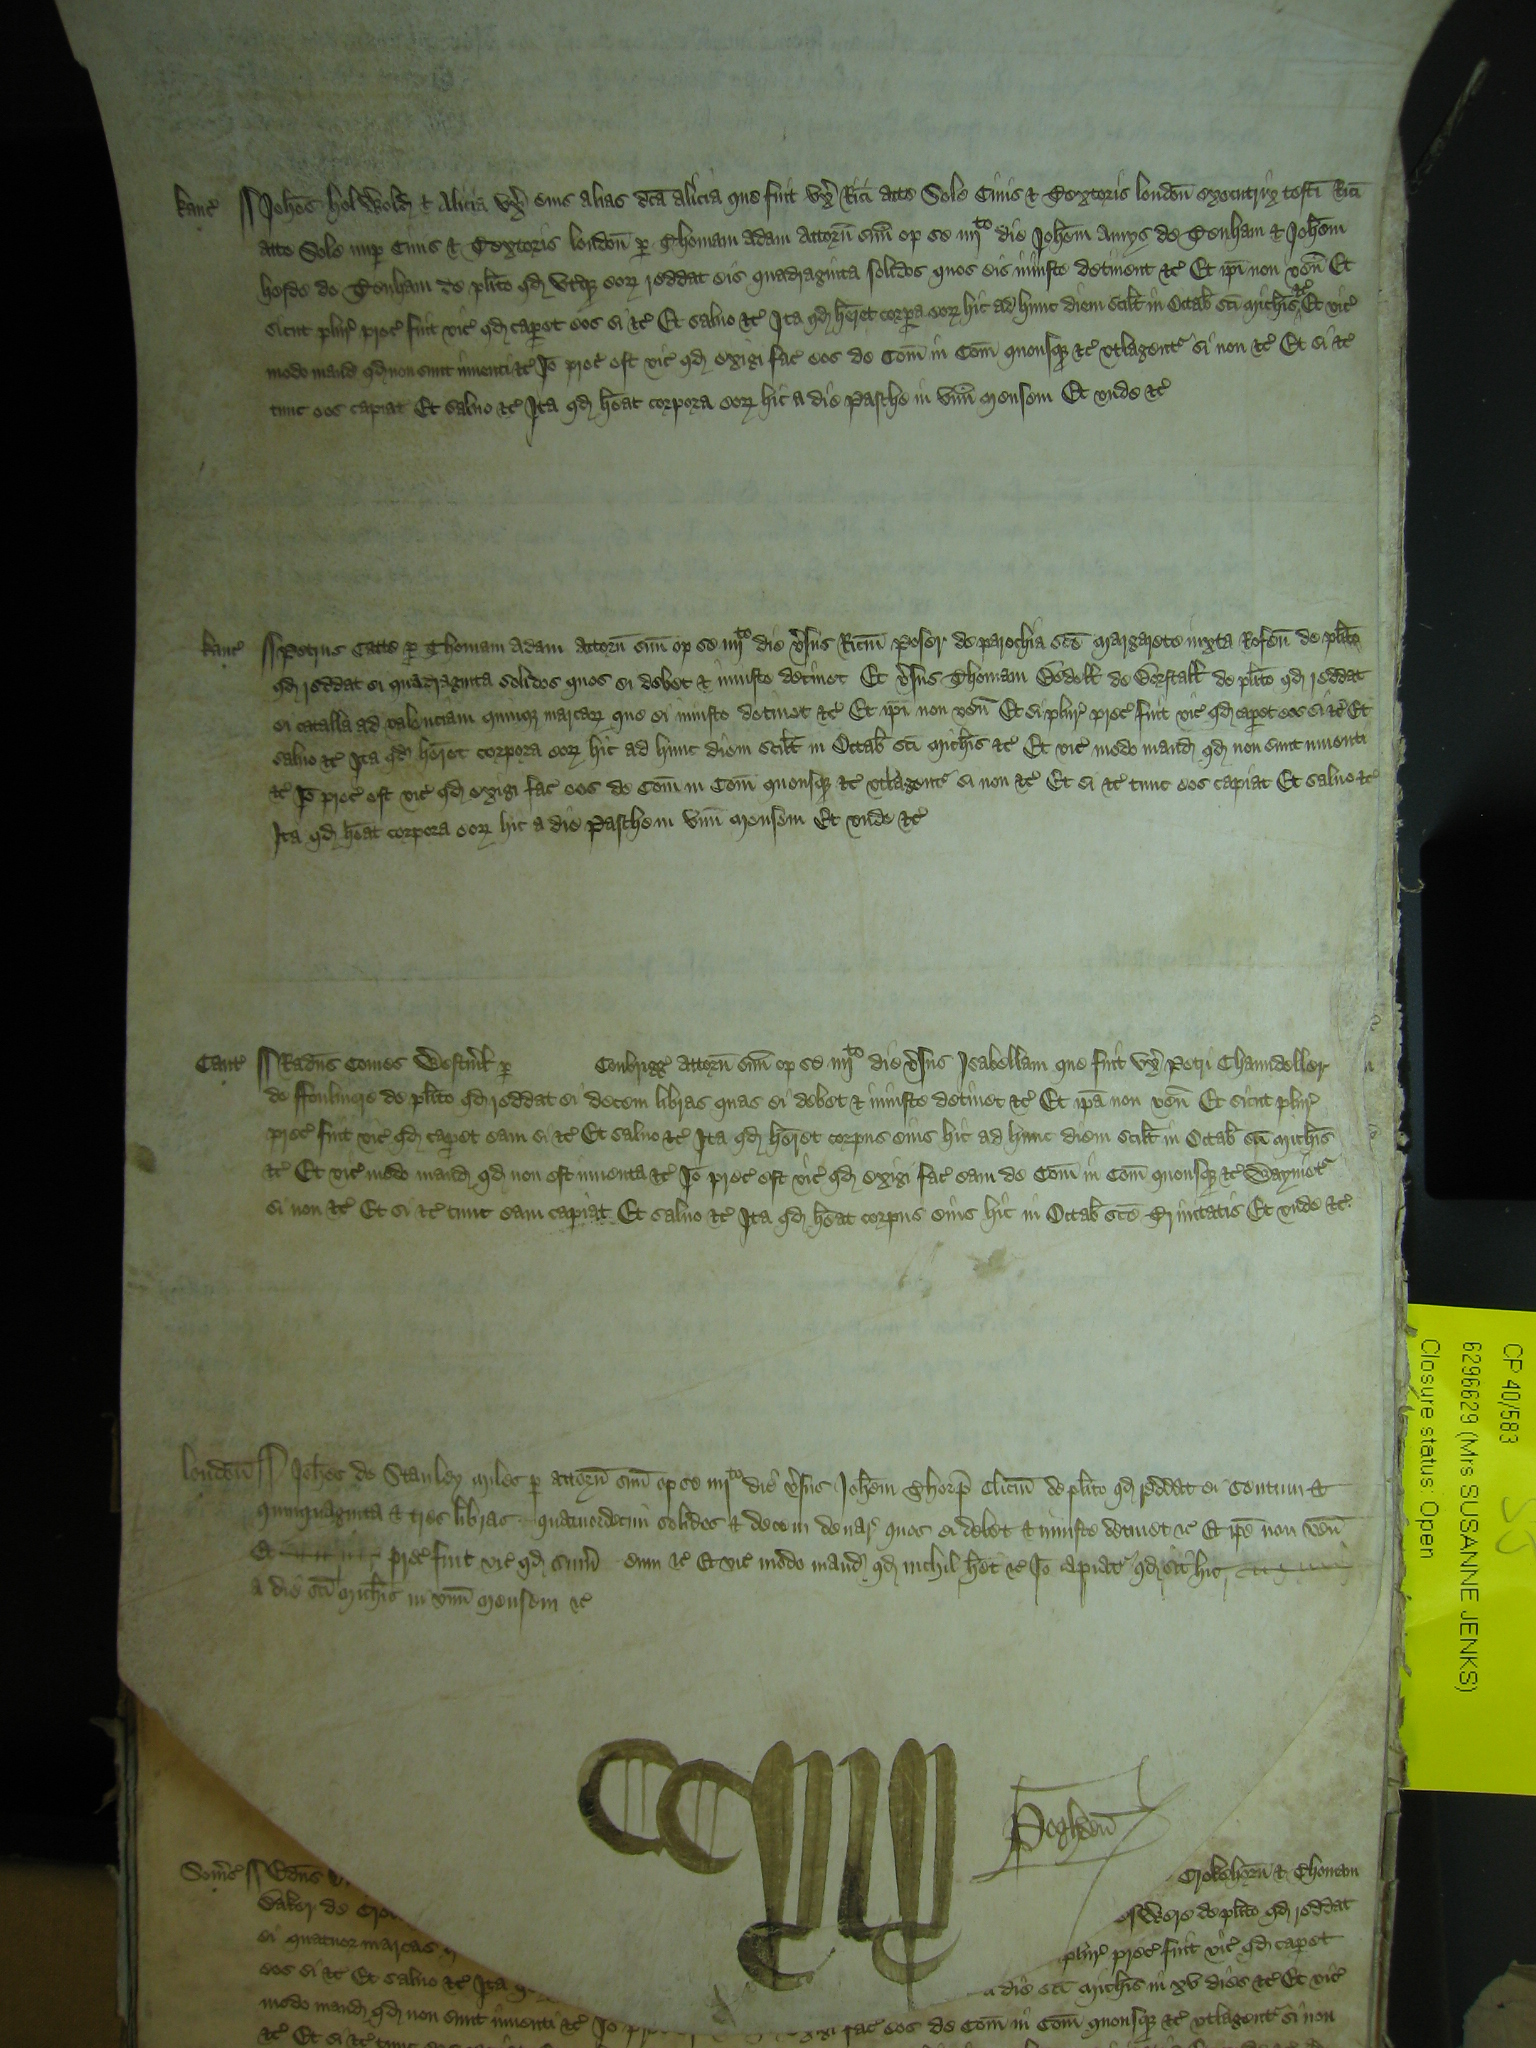 kanc̄ Joh̄es holWold & Alicia vx̄ eius alias dc̄a alicia que fuit vx̄ Ric̄i atte Sole Ciuis & Textoris london̄ executrix testī Ric̄i
atte Sole nup Ciuis & Textoris london̄ p Thomam Adam Attorn̄ suū op se iiijto die Joh̄em Amys de Tenham & Joh̄em
de Tenham de pl̄ito qd vtq eoꝝ reddat eis quadraginta solidos quos eis iniuste detinent &c̄ Et ip̄i non ven̄ Et
sicut plur̄ prec̄ fuit vic̄ qd cap̄et eos si &c̄ Et saluo &c̄ Ita qd h̄eret corp̄a eoꝝ hic ad hunc diem scil̄t in Octab̄ sc̄i Mich̄is &c̄ Et vic̄
modo mand qd non sunt inuenti &c̄ Jo prec̄ est vic̄ qd exigi fac̄ eos de Com̄ in Com̄ quousq &c̄ vtlagent̄ si non &c̄ Et si &c̄
tunc eos capiat Et saluo &c̄ Ita qd h̄eat corpora eoꝝ hic a die Pasche in vnū Mensem Et vnde &c̄
kanc̄ Petrus Catte p Thomam Adam Attorn̄ suū op se iiijto die v̄sus Ric̄m Poser de parochia sc̄e Margarete iuxta Rofen̄ de pl̄ito
qd reddat ei quadraginta solidos quos ei debet & iniuste detinet Et v̄sus Thomam Bedell̄ de Borstall̄ de pl̄ito qd reddat
ei catalla ad valenciam quinq marcaꝝ que ei iniuste detinet &c̄ Et ip̄i non ven̄ Et si plur̄ prec̄ fuit vic̄ qd cap̄et eos si &c̄ Et
saluo &c̄ Ita qd h̄eret corpora eoꝝ hic ad hunc diem scil̄t in Octab̄ sc̄i Mich̄is &c̄ Et vic̄ modo mand qd non sunt inuenti
&c̄ Jo prec̄ est vic̄ qd exigi fac̄ eos de Com̄ in Com̄ quousq &c̄ vtlagent̄ si non &c̄ Et si &c̄ tunc eos capiat Et saluo &c̄
Ita qd h̄eat corpora eoꝝ hic a die Pasche in vnū Mensem Et vnde &c̄
Cant̄ Radus Comes Westml̄ p Conbrigg attorn̄ suū op se iiijto die v̄sus Isabellam que fuit vx̄ Petri Chaundeller
de ffoulmere de pl̄ito qd reddat ei decem libras quas ei debet & iniuste detinet &c̄ Et ip̄a non ven̄ Et sicut plur̄
prec̄ fuit vic̄ qd cap̄et eam si &c̄ Et saluo &c̄ Ita qd h̄eret corpus eius hic ad hunc diem scil̄t in Octab̄ sc̄i Mich̄is
&c̄ Et vic̄ modo mand qd non est inuenta &c̄ Jo prec̄ est vic̄ qd exigi fac̄ eam de Com̄ in Com̄ quousq &c̄ Wayuiet̄
si non &c̄ Et si &c̄ tunc eam capiat Et saluo &c̄ Ita qd h̄eat corpus eius hic in Octab̄ sc̄e Trinitatis Et vnde &c̄
london̄ Joh̄es de Stanley miles p attorn̄ suū op se iiijto die v̄sus Joh̄em Thorp̄ Clic̄um de pl̄ito qd reddat ei Centum &
quinquaginta & tres libras quatuordecim solidos & decem denar̄ quos ei debet & iniuste detinet &c̄ Et ip̄e non ven̄
Et prec̄ fuit vic̄ qd sum̄ eum &c̄ Et vic̄ modo mand qd nichil h̄et &c̄ Jo capiat̄ qd sit hic
a die sc̄i Mich̄is in vnū Mensem &c̄
Som̄s Crokehorn̄ & Thomam
Baker de de pl̄ito qd reddat
ei quatuor marcas plur̄ prec̄ fuit vic̄ qd cap̄et
eos si &c̄ Et saluo &c̄ Ita a die sc̄i Mich̄is in xv dies &c̄ Et vic̄
modo mand qd non sunt inuenti &c̄ Jo exigi fac̄ eos de Com̄ in Com̄ quousq &c̄ vtlagent̄ si non
&c̄ Et si &c̄ tunc
CP 40/583
6296629 (Mrs SUSANNE JENKS)
Closure status: Open